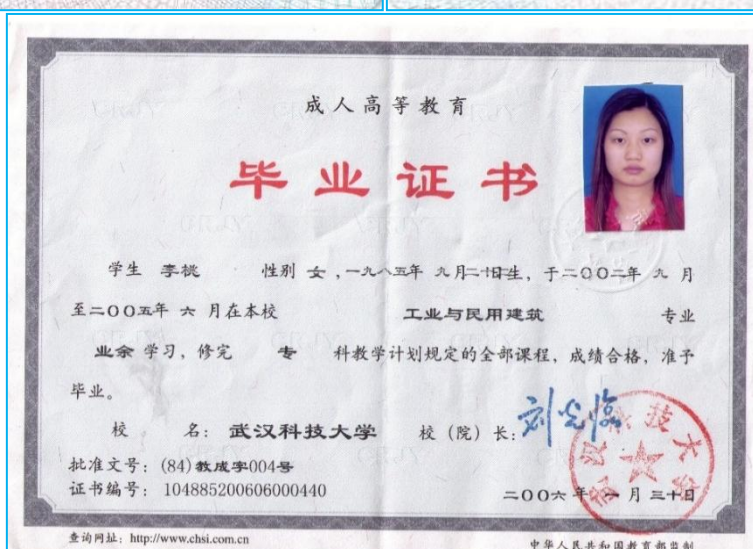 成人高等教育
毕业证书
学生 李桃 性别 女，一九八五年 九月二十 生，于二〇〇二年 九 月
至二〇〇五年 六 月在本校 工业与民用建筑 专业
业余 学习，修完 专 科教学计划规定的全部课程，成绩合格，准予
毕业。
校 名：武汉科技大学 校（院）长：刘光临
批准文号：(84)教成字004号
证书编号：104885200606000440
二〇〇六 年 一 月 三十日
武汉科技大学
查询网址：http://www.chsi.com.cn
中华人民共和国教育部监制